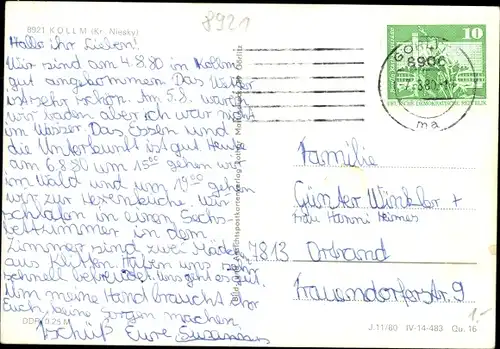 8921
8921 KOLLM (Kr. Niesky)
Hallo ihr Lieben!
Wir sind am 4.8.80 in Kollm
gut angekommen. Das Wetter
ist sehr schön. Am 5.8. waren
wir baden aber ich war nicht
im Wasser. Das Essen und
die Unterkunft ist gut. Heute
am 6.8.80 um 15°° gehen wir
im Wald und um 19°° gehen
wir zur Hexenbuche. Wir
schlafen in einem Sechs-
bettzimmer in dem
Zimmer sind zwei Mädchen
aus Klitten. Haben uns sehr
schnell befreundet uns geht es gut.
Um meine Hand braucht ihr
Euch keine Sorgen machen.
Tschüß Eure
DDR 0,25 M
10
DEUTSCHE DEMOKRATISCHE REPUBLIK
GÖRLITZ
8906
80
ma
Familie
Günter Winkler +
Frau Hanni Heimes
7813 Ortrand
Frauendorferstr. 9
1.-
J.11/80 IV-14-483 Qu. 16